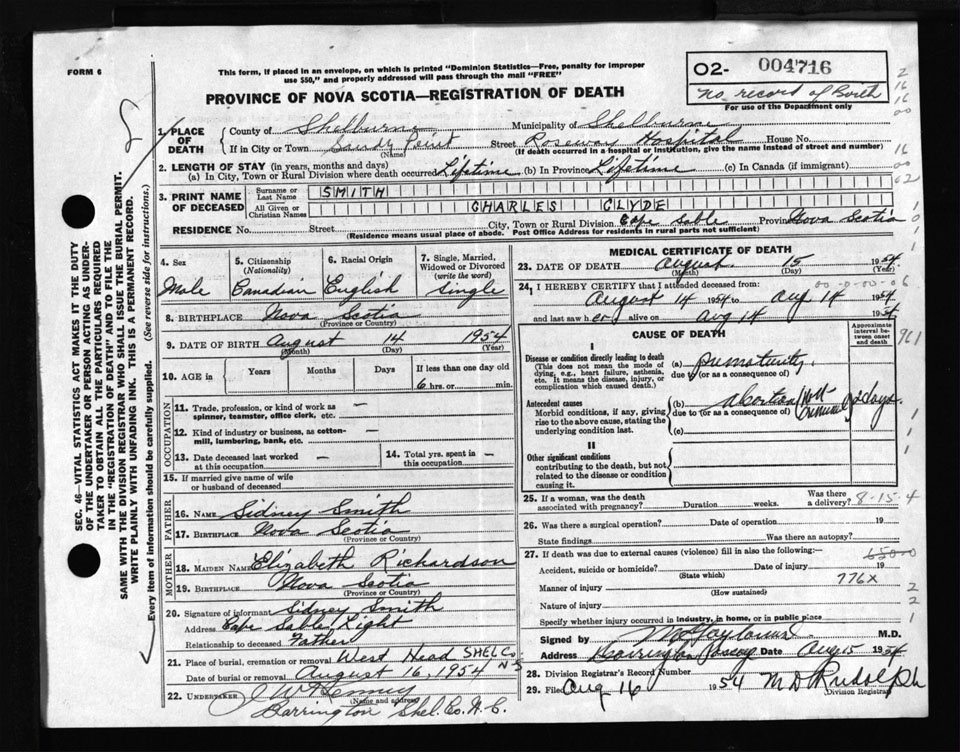 FORM 6
This form, if placed in an envelope, on which is printed "Dominion Statistics—Free, penalty for improper
use $50," and properly addressed will pass through the mail "FREE"
PROVINCE OF NOVA SCOTIA—REGISTRATION OF DEATH
02- 004716
No record of Birth
For use of the Department only
1. PLACE OF DEATH
County of Shelburne Municipality of Shelburne
If in City or Town Sandy Point Street Roseway Hospital House No.
(Name) (If death occurred in a hospital or institution, give the name instead of street and number)
2. LENGTH OF STAY (in years, months and days)
(a) In City, Town or Rural Division where death occurred Lifetime (b) In Province Lifetime (c) In Canada (if immigrant)
3. PRINT NAME OF DECEASED
Surname or Last Name SMITH
All Given or Christian Names CHARLES CLYDE
RESIDENCE No. Street City, Town or Rural Division Cape Sable Province Nova Scotia
(Residence means usual place of abode. Post Office Address for residents in rural parts not sufficient)
SEC. 46—VITAL STATISTICS ACT MAKES IT THE DUTY
OF THE UNDERTAKER OR PERSON ACTING AS UNDER-
TAKER TO OBTAIN ALL THE PARTICULARS REQUIRED
IN THE "REGISTRATION OF DEATH" AND TO FILE THE
SAME WITH THE DIVISION REGISTRAR WHO SHALL ISSUE THE BURIAL PERMIT.
WRITE PLAINLY WITH UNFADING INK. THIS IS A PERMANENT RECORD.
Every item of information should be carefully supplied. (See reverse side for instructions.)
4. Sex
Male
5. Citizenship
(Nationality)
Canadian
6. Racial Origin
English
7. Single, Married,
Widowed or Divorced
(write the word)
Single
8. BIRTHPLACE Nova Scotia
(Province or Country)
9. DATE OF BIRTH August 14 1954
(Month) (Day) (Year)
10. AGE in
Years Months Days If less than one day old
6 hrs. or min.
OCCUPATION
11. Trade, profession, or kind of work as
spinner, teamster, office clerk, etc. —
12. Kind of industry or business, as cotton-
mill, lumbering, bank, etc. —
13. Date deceased last worked
at this occupation —
14. Total yrs. spent in
this occupation —
15. If married give name of wife
or husband of deceased
FATHER
16. NAME Sidney Smith
17. BIRTHPLACE Nova Scotia
(Province or Country)
MOTHER
18. MAIDEN NAME Elizabeth Richardson
19. BIRTHPLACE Nova Scotia
(Province or Country)
20. Signature of informant Sidney Smith
Address Cape Sable Light
Relationship to deceased Father
21. Place of burial, cremation or removal West Head SHEL Co. N S
Date of burial or removal August 16, 1954
22. UNDERTAKER J W Kenney
(Name and address)
Barrington Shel. Co. N. S.
MEDICAL CERTIFICATE OF DEATH
23. DATE OF DEATH August 15 1954
(Month) (Day) (Year)
24. I HEREBY CERTIFY that I attended deceased from:
August 14 1954 to Aug 14 1954
and last saw her alive on Aug 14 1954
CAUSE OF DEATH
Approximate
interval be-
tween onset
and death
961
I
Disease or condition directly leading to death
(This does not mean the mode of
dying, e.g., heart failure, asthenia,
etc. It means the disease, injury, or
complication which caused death.)
(a) prematurity
due to (or as a consequence of)
Antecedent causes
Morbid conditions, if any, giving
rise to the above cause, stating the
underlying condition last.
(b) abortion Not Criminal 2 days.
due to (or as a consequence of)
(c)
II
Other significant conditions
contributing to the death, but not
related to the disease or condition
causing it.
25. If a woman, was the death
associated with pregnancy? Duration weeks. Was there
a delivery? 8-15-4
26. Was there a surgical operation? Date of operation 19
State findings Was there an autopsy?
27. If death was due to external causes (violence) fill in also the following:—
Accident, suicide or homicide? Date of injury 19
(State which)
776X
Manner of injury
(How sustained)
Nature of injury
Specify whether injury occurred in industry, in home, or in public place
Signed by M.D.
Address Barrington Passage Date Aug 15 1954
28. Division Registrar's Record Number
29. Filed Aug 16 1954 M D Rudolph
Division Registrar